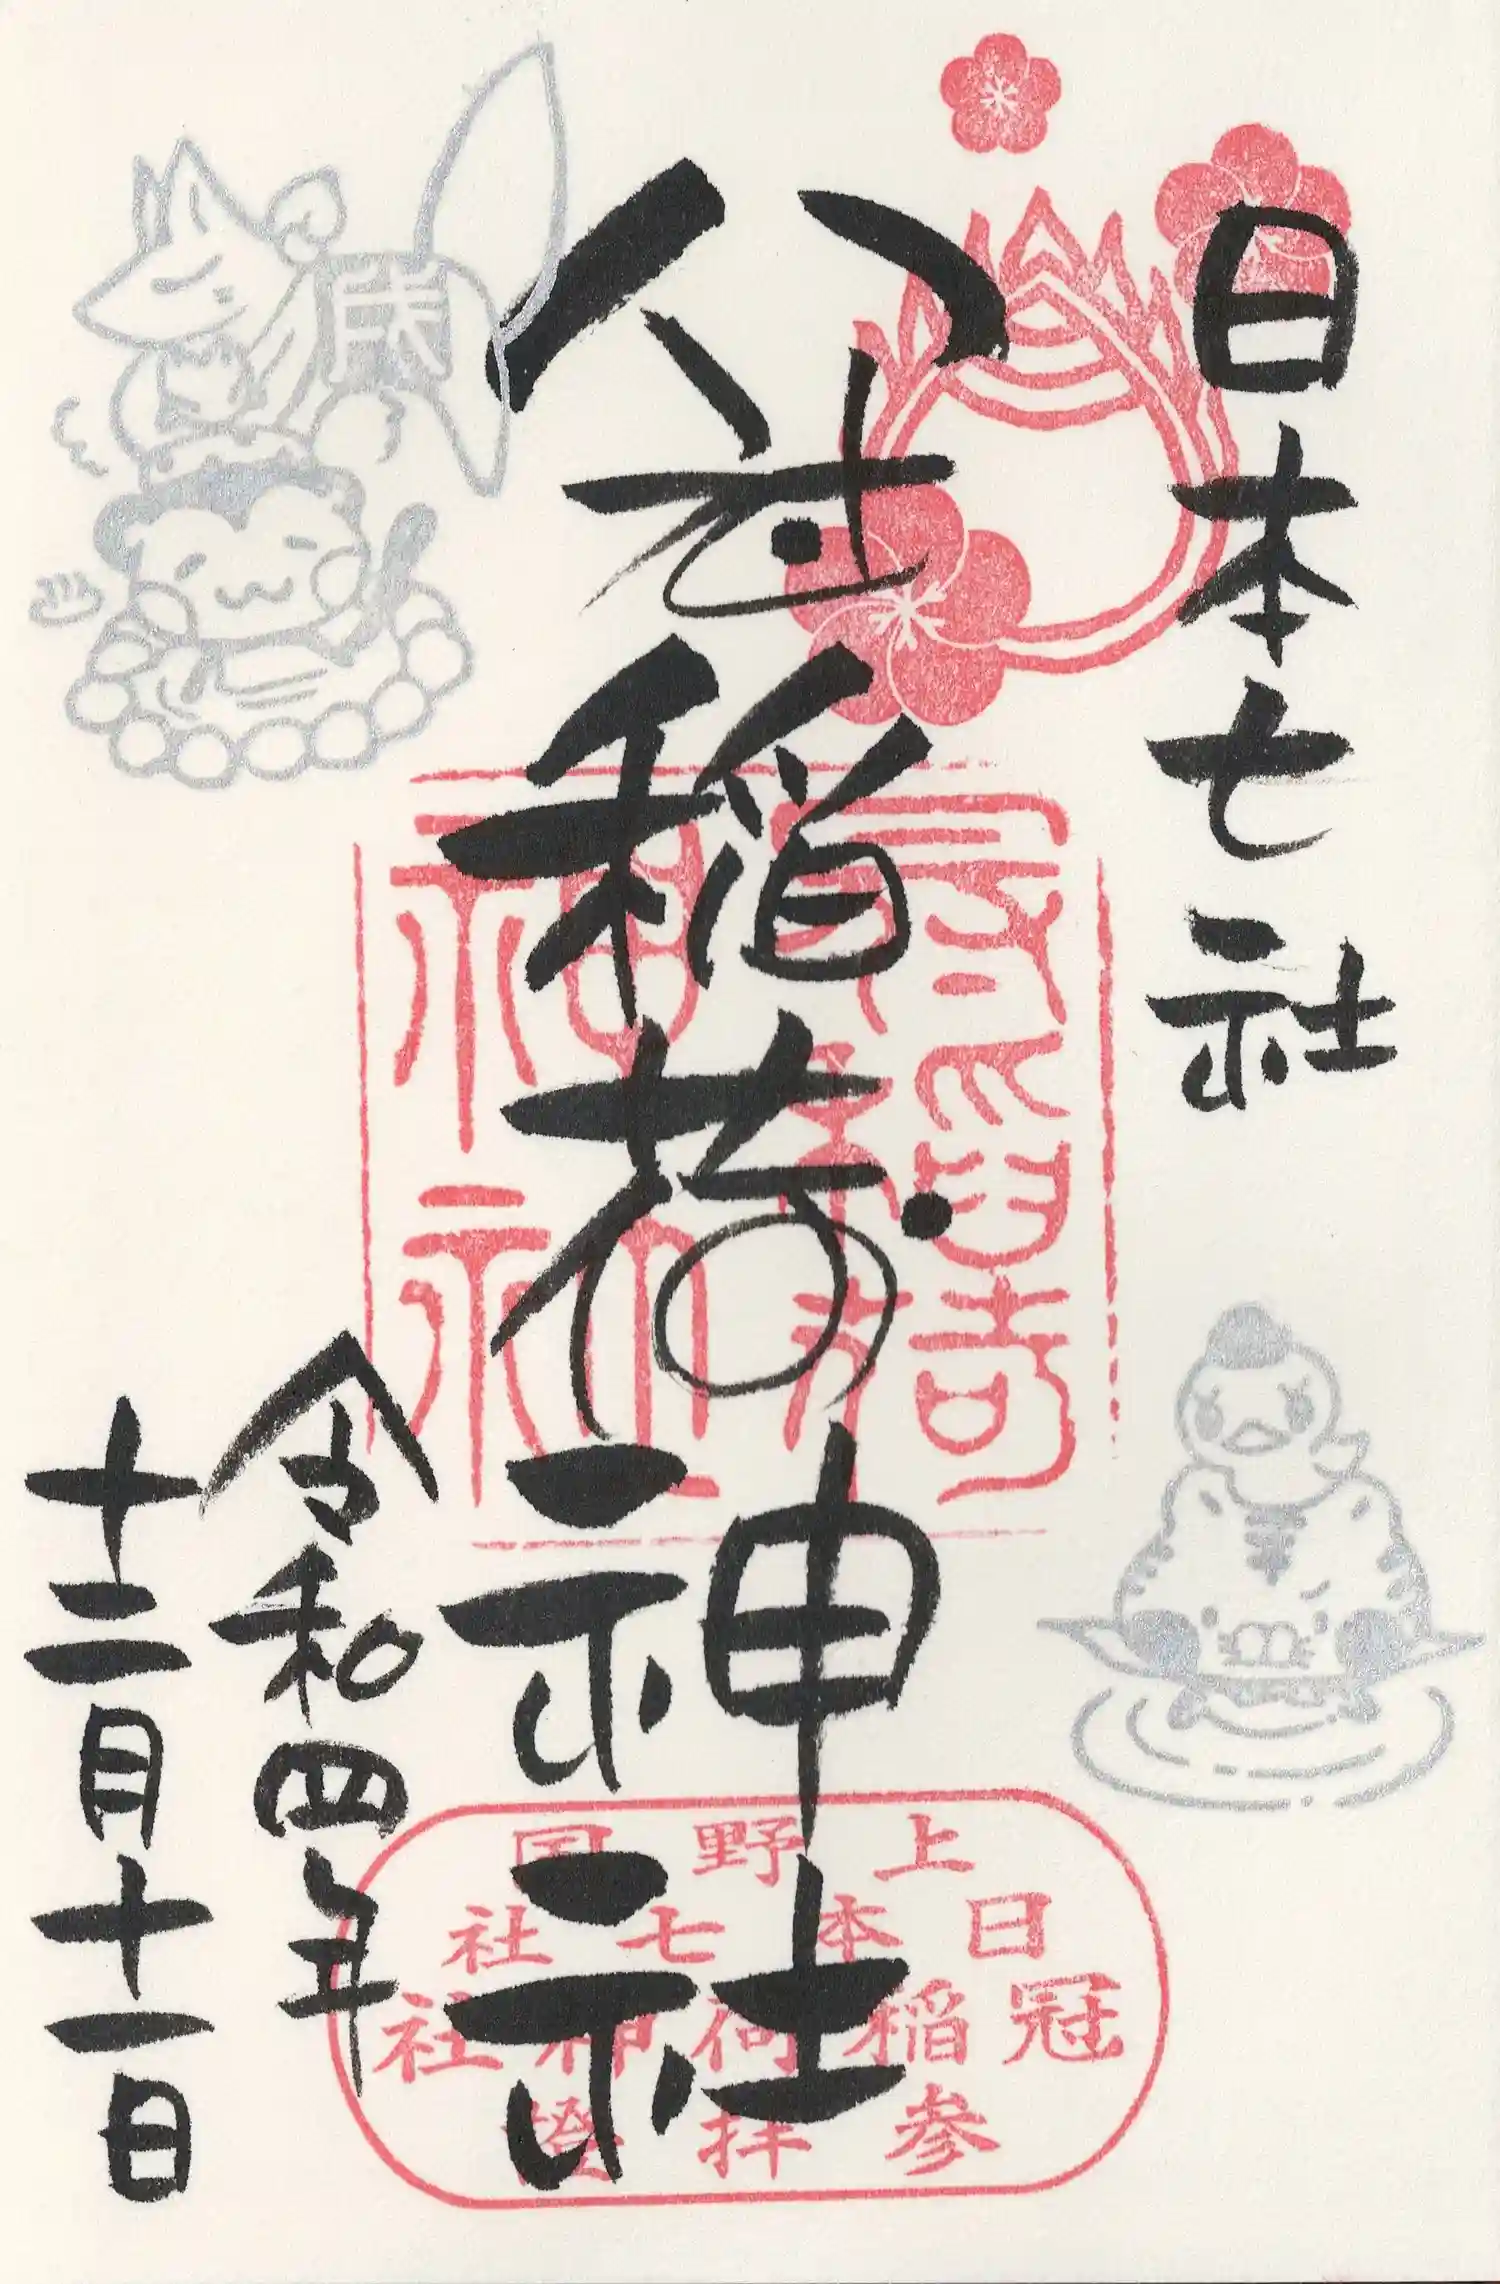 日本七社
冠稲荷神社
令和四年
十二月十一日
上野国
日本七社
冠稲荷神社
参拝證